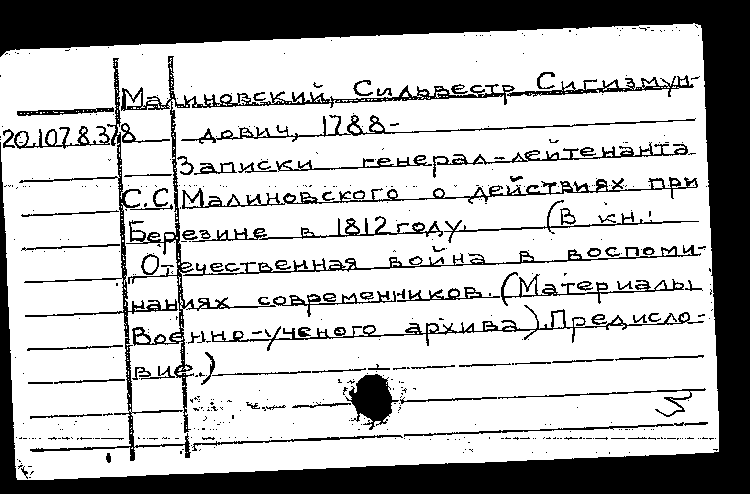 Малиновский, Сильвестр Сигизмун-
20.107.8.378 дович, 1788-
Записки генерал-лейтенанта
С.С. Малиновского о действиях при
Березине в 1812 году. (В кн.:
"Отечественная война в воспоми-
наниях современников. (Материалы
Военно-ученого архива). Предисло-
вие.)